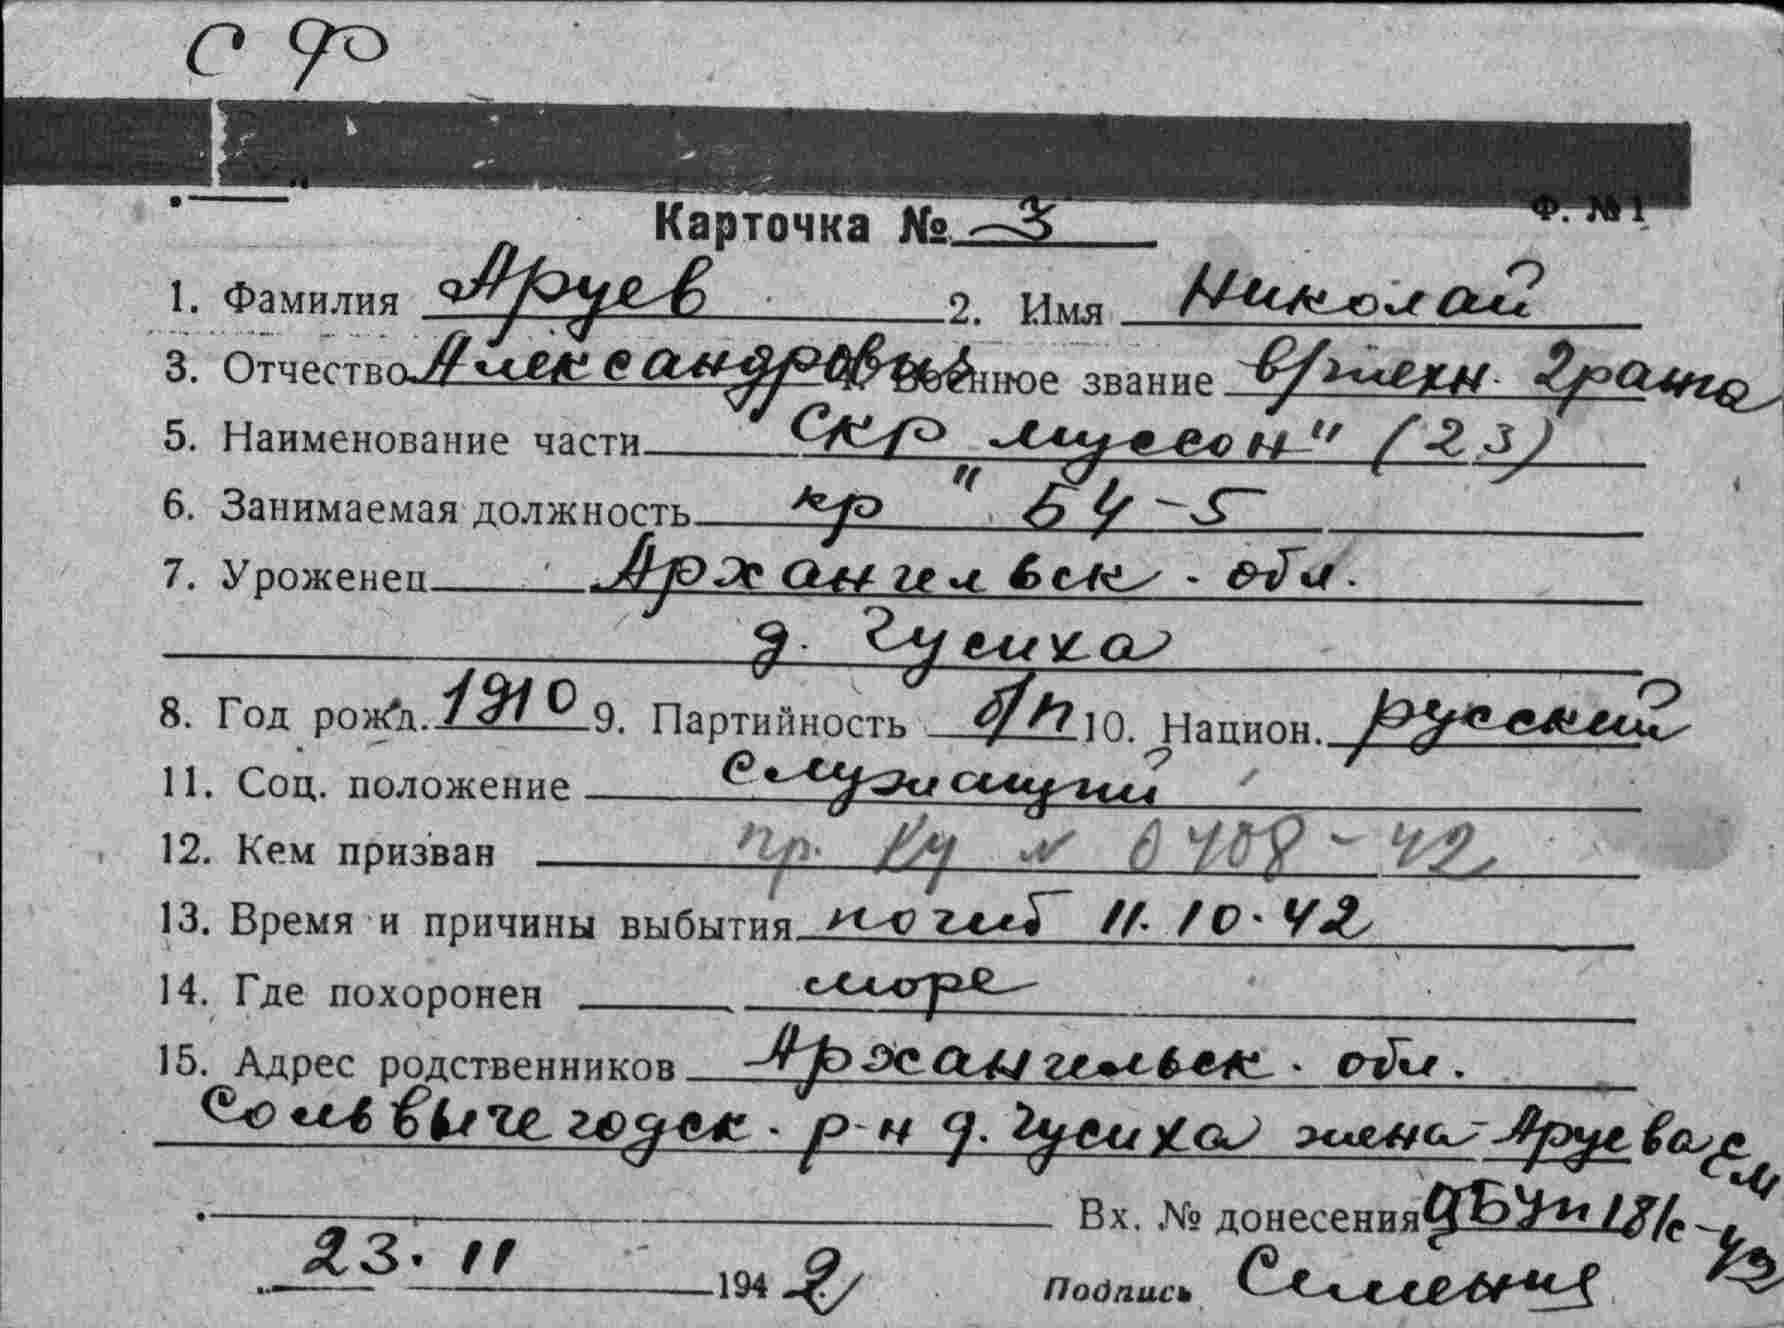 СФ
Ф. № 1
Карточка № 3
1. Фамилия Аруев 2. Имя Николай
3. Отчество Александрович Военное звание в/техн 2 ранга
5. Наименование части СКР "Муссон" (23)
6. Занимаемая должность кр " БЧ-5
7. Уроженец Архангельск. обл.
д. Гусиха
8. Год рожд. 1910 9. Партийность б/п 10. Национ. русский
11. Соц. положение служащий
12. Кем призван пр. № 0408-42
13. Время и причины выбытия погиб 11.10.42
14. Где похоронен море
15. Адрес родственников Архангельск. обл.
Сольвычегодск. р-н д. Гусиха жена Аруева
Вх. № донесения 18/с-42
23. 11 1942 Подпись